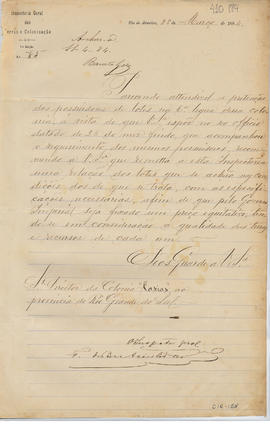 Inspectoria Geral
das
Terras e Colonisação
Rio de Janeiro, 28 de Março de 1884.
Archive
Tomando attendivel a pretenção
dos possuidores de lotes na 6ª legua dessa colo
nia, á vista do que V. Sª expõe no officio
datado de 23 de
o requerimento dos mesmos possuidores, recom
mendo a V. Sª que remetta a esta Inspectoria
uma relação dos lotes que se achão nas con
dições dos de que se trata, com as especifi
cações necessarias, afim de que pelo Governo
Imperial seja fixado um preço equitativo, ten
do-se em consideração a qualidade das terras
e recursos de cada um.
Deos Guarde a V. Sª
Sr. Director da Colonia "Caxias", na
provincia do Rio Grande do Sul.
O Inspector geral